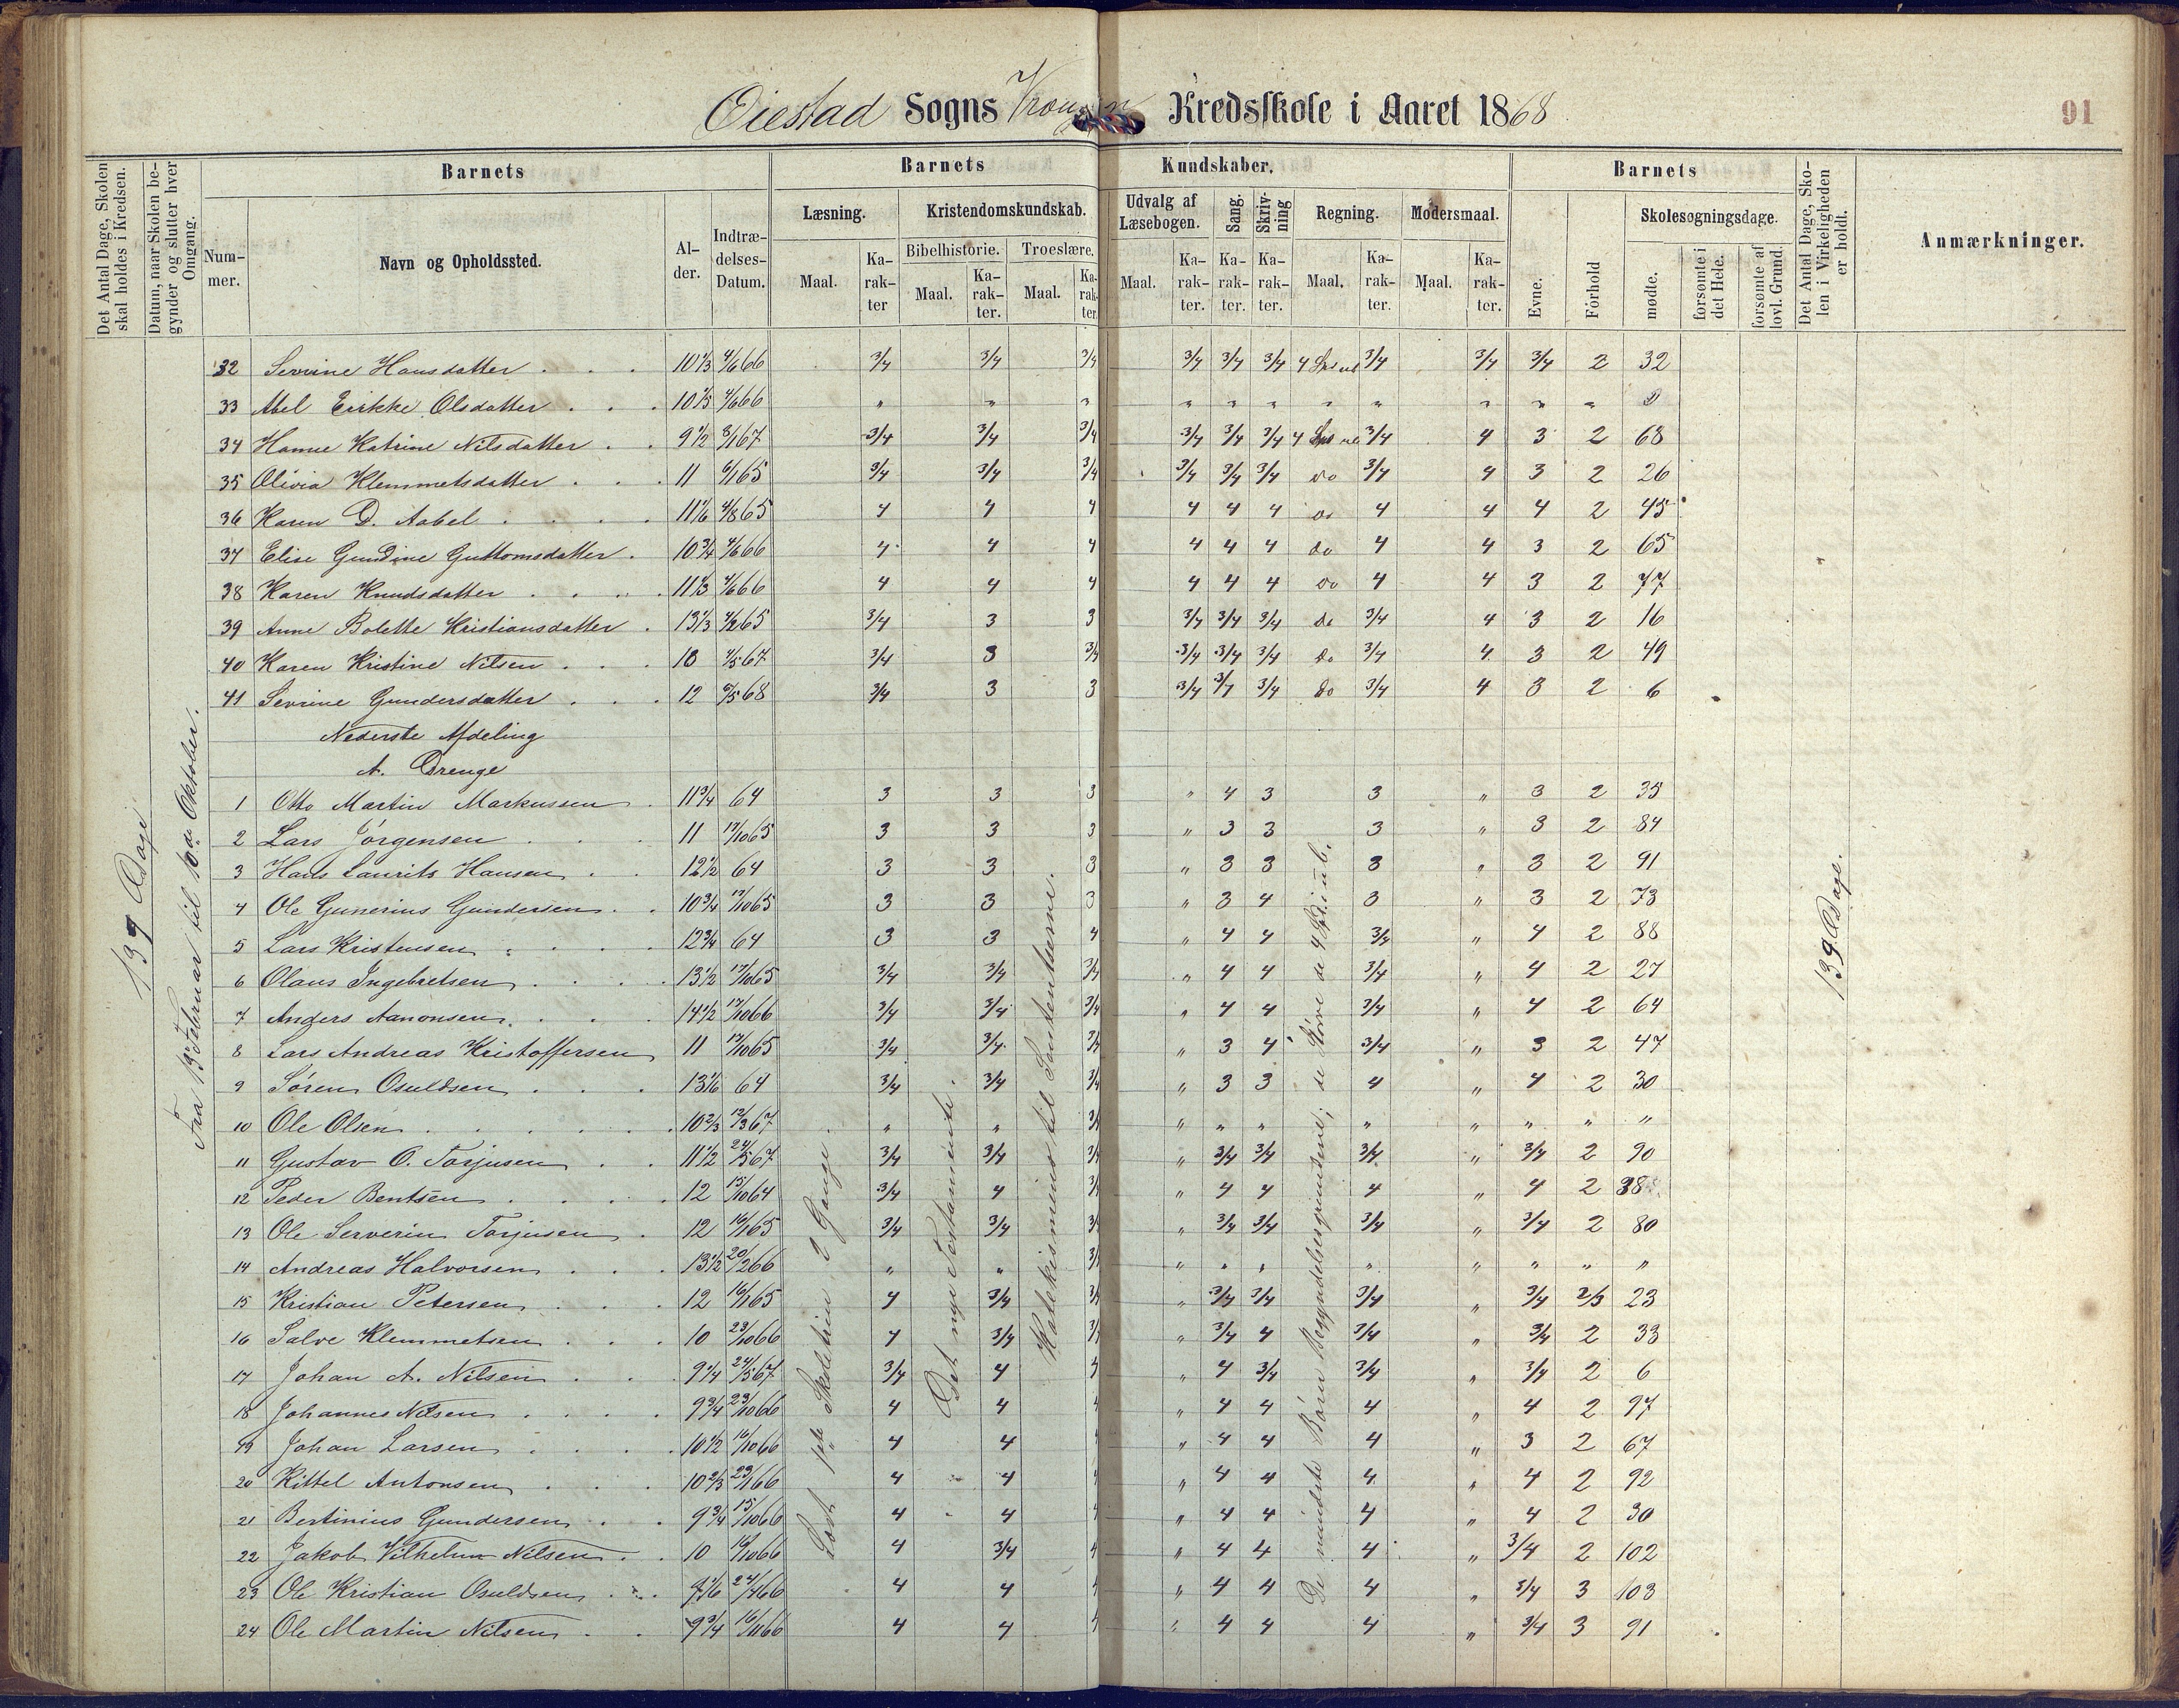 Øiestad Sogns Kredsskole i Aaret 1868
91
Det Antal Dage, Skolen skal holdes i Kredsen.
Datum, naar Skolen begynder og slutter hver Omgang.
Barnets
Nummer.
Navn og Opholdssted.
Alder.
Indtrædelses-Datum.
Barnets Kundskaber.
Læsning.
Maal.
Karakter
Kristendomskundskab.
Bibelhistorie.
Maal.
Karakter.
Troeslære.
Maal.
Karakter.
Udvalg af Læsebogen.
Maal.
Karakter.
Sang.
Karakter.
Skrivning
Karakter.
Regning.
Maal.
Karakter.
Modersmaal.
Maal.
Karakter.
Barnets
Evne.
Forhold
Skolesøgningsdage.
mødte.
forsømte i det Hele.
forsømte af lovl. Grund.
Det Antal Dage, Skolen i Virkeligheden er holdt.
Anmærkninger.
32 Sevrine Hansdatter 10 1/3 4/6 66 3/4 3/4 3/4 3/4 3/4 3/4 3/4 3/4 3/4 2 32
33 Abel Erikke Olsdatter 4/6 66 " " " " " " " " " " "
34 Hanne Katrine Nilsdatter 9 1/2 8/1 67 3/4 3/4 3/4 3/4 3/4 3/4 3/4 4 3 2 68
35 Olivia Klemmetsdatter 11 6/1 65 3/4 3/4 3/4 3/4 3/4 3/4 do 3/4 4 3 2 26
36 Karen D. Aabel 11 1/6 4/8 65 4 4 4 4 4 4 do 4 4 4 2 45
37 Elise Gundine Guttomsdatter 10 3/4 4/6 66 4 4 4 4 4 4 do 4 4 3 2 65
38 Karen Knudsdatter 11 1/3 4/6 66 4 4 4 4 4 4 do 4 4 3 2 77
39 Anne Bolette Kristiansdatter 13 1/3 4/2 65 3/4 3 3 3/4 3/4 3/4 do 3/4 4 3 2 16
40 Karen Kristine Nilsen 10 4/5 67 3/4 3 3/4 3/4 3/4 3/4 do 3/4 4 3 2 49
41 Sevrine Gundersdatter 12 68 3/4 3 3 3/4 3/4 3/4 do 3/4 4 3 2 6
Nederste Afdeling
A. Drenge
1 Otto Martin Markussen 11 3/4 64 3 3 3 " 4 3 3 " 3 2 35
2 Lars Jørgensen 11 17/10 65 3 3 3 " 3 3 3 " 3 2 84
3 Hans Laurits Hansen 12 1/2 64 3 3 3 " 3 3 3 " 3 2 91
4 Ole Gunerius Gundersen 10 3/4 17/10 65 3 3 3 " 3 4 3 " 3 2 73
5 Lars Kristensen 12 3/4 64 3 3 4 " 4 4 3/4 " 4 2 88
6 Olaus Ingebretsen 13 1/2 17/10 65 3/4 3/4 3/4 " 4 4 3/4 " 4 2 27
7 Anders Aanonsen 14 1/2 17/10 66 3/4 3/4 3/4 " 4 4 3/4 " 4 2 64
8 Lars Andreas Kristoffersen 11 17/10 65 3/4 3/4 3/4 " 3 4 3/4 " 3 2 47
9 Søren Osuldsen 13 1/6 64 3/4 3/4 3/4 " 3 3 4 " 4 2 30
10 Ole Olsen 10 2/3 12/3 67 " " 3/4 " " " " " " " "
11 Gustav O. Torjusen 11 1/2 24/5 67 3/4 3/4 3/4 " 3/4 3/4 3/4 " 3/4 2 90
12 Peder Bentsen 12 15/10 64 3/4 4 3/4 " 4 4 4 " 4 2 38
13 Ole Serverin Torjusen 12 16/1 65 3/4 3/4 3/4 " 3/4 3/4 3/4 " 3/4 2 80
14 Andreas Halvorsen 13 1/2 20/2 66 " " 3/4 " " " " " " " "
15 Kristian Petersen 12 16/1 65 4 3/4 3/4 " 3/4 3/4 3/4 " 3/4 2/3 23
16 Salve Klemmetsen 10 23/10 66 4 3/4 3/4 " 3/4 4 3/4 " 3/4 2 33
17 Johan A. Nilsen 9 1/4 24/5 67 3/4 4 4 " 4 3/4 3/4 " 3/4 2 6
18 Johannes Nilsen 9 3/4 23/10 66 4 4 4 " 4 4 4 " 4 2 97
19 Johan Larsen 10 1/2 16/10 66 4 4 4 " 4 4 4 " 3 2 67
20 Kittel Antonsen 10 2/3 23/1 66 4 4 4 " 4 4 4 " 4 2 92
21 Bertinius Gundersen 9 3/4 15/10 66 4 4 4 " 4 4 4 " 4 2 30
22 Jakob Vilhelm Nilsen 10 16/10 66 4 3/4 4 " 4 4 4 " 3/4 2 102
23 Ole Kristian Osuldsen 24/4 66 4 4 4 " 4 4 4 " 3/4 3 103
24 Ole Martin Nilsen 9 3/4 16/11 66 4 4 4 " 4 4 4 " 3/4 3 91
139 Dage
Fra 13de Februar til 10de Oktober.
Læst 1ste Skoletrin 2 Gange
Det nye Testamente
Katekismens til Sententserne.
De mindste Børn Begyndelsesgrundene; de større de 4
139 Dage.